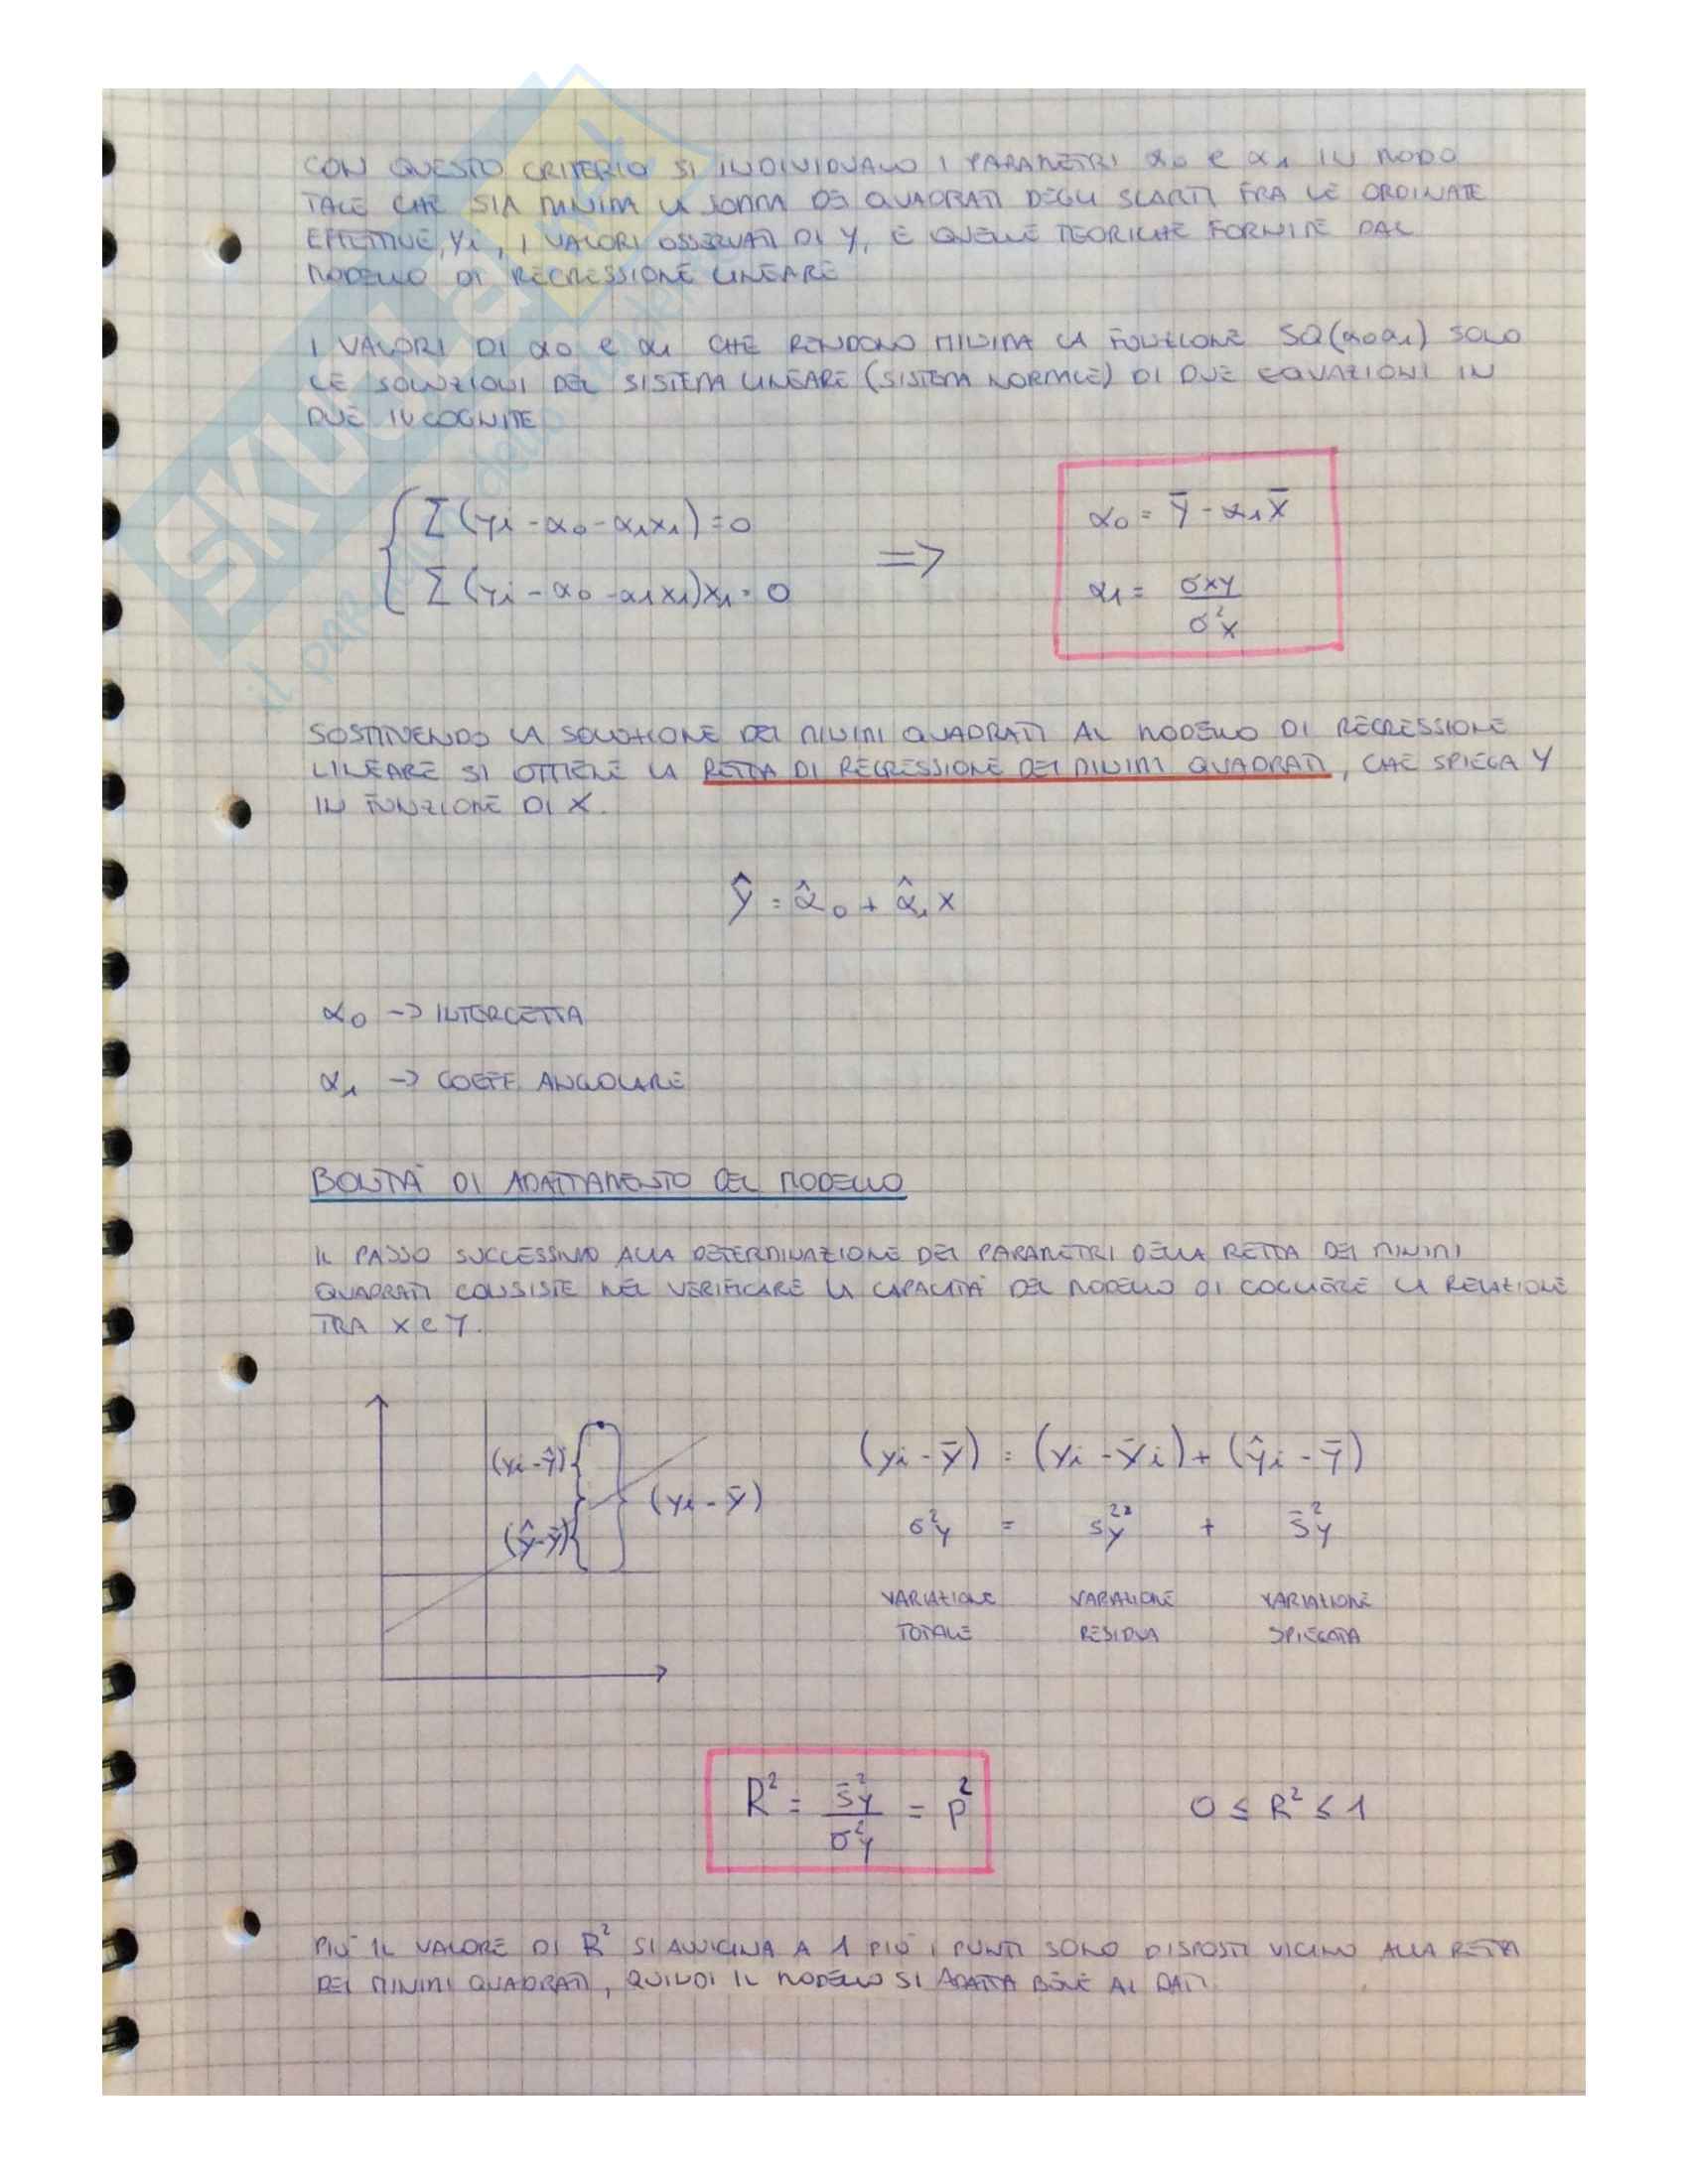 CON QUESTO CRITERIO SI INDIVIDUANO I PARAMETRI α0 e α1 IN MODO
TALE CHE SIA MINIMA LA SOMMA DEI QUADRATI DEGLI SCARTI FRA LE ORDINATE
EFFETTIVE, yi, I VALORI OSSERVATI DI Y, E QUELLE TEORICHE FORNITE DAL
MODELLO DI REGRESSIONE LINEARE
I VALORI DI α0 e α1 CHE RENDONO MINIMA LA FUNZIONE SQ(α0α1) SONO
LE SOLUZIONI DEL SISTEMA LINEARE (SISTEMA NORMALE) DI DUE EQUAZIONI IN
DUE INCOGNITE
Σ(yi - α0 - α1x1) = 0
Σ(yi - α0 - α1x1)x1 = 0
=>
α0 = ȳ - α1x̄
α1 = σxy / σ²x
SOSTITUENDO LA SOLUZIONE DEI MINIMI QUADRATI AL MODELLO DI REGRESSIONE
LINEARE SI OTTIENE LA RETTA DI REGRESSIONE DEI MINIMI QUADRATI, CHE SPIEGA Y
IN FUNZIONE DI X.
ŷ = α̂0 + α̂1 x
α0 -> INTERCETTA
α1 -> COEFF. ANGOLARE
BONTÀ DI ADATTAMENTO DEL MODELLO
IL PASSO SUCCESSIVO ALLA DETERMINAZIONE DEI PARAMETRI DELLA RETTA DEI MINIMI
QUADRATI CONSISTE NEL VERIFICARE LA CAPACITÀ DEL MODELLO DI COGLIERE LA RELAZIONE
TRA X e Y.
(yi - ŷ)
(yi - ȳ)
(ŷ - ȳ)
(yi - ȳ) = (yi - ȳi) + (ŷi - ȳ)
σ²y = s²y + s̄²y
VARIAZIONE VARIAZIONE VARIAZIONE
TOTALE RESIDUA SPIEGATA
R² = s̄²y / σ²y = ρ²
0 ≤ R² ≤ 1
PIÙ IL VALORE DI R² SI AVVICINA A 1 PIÙ I PUNTI SONO DISPOSTI VICINO ALLA RETTA
DEI MINIMI QUADRATI, QUINDI IL MODELLO SI ADATTA BENE AI DATI.